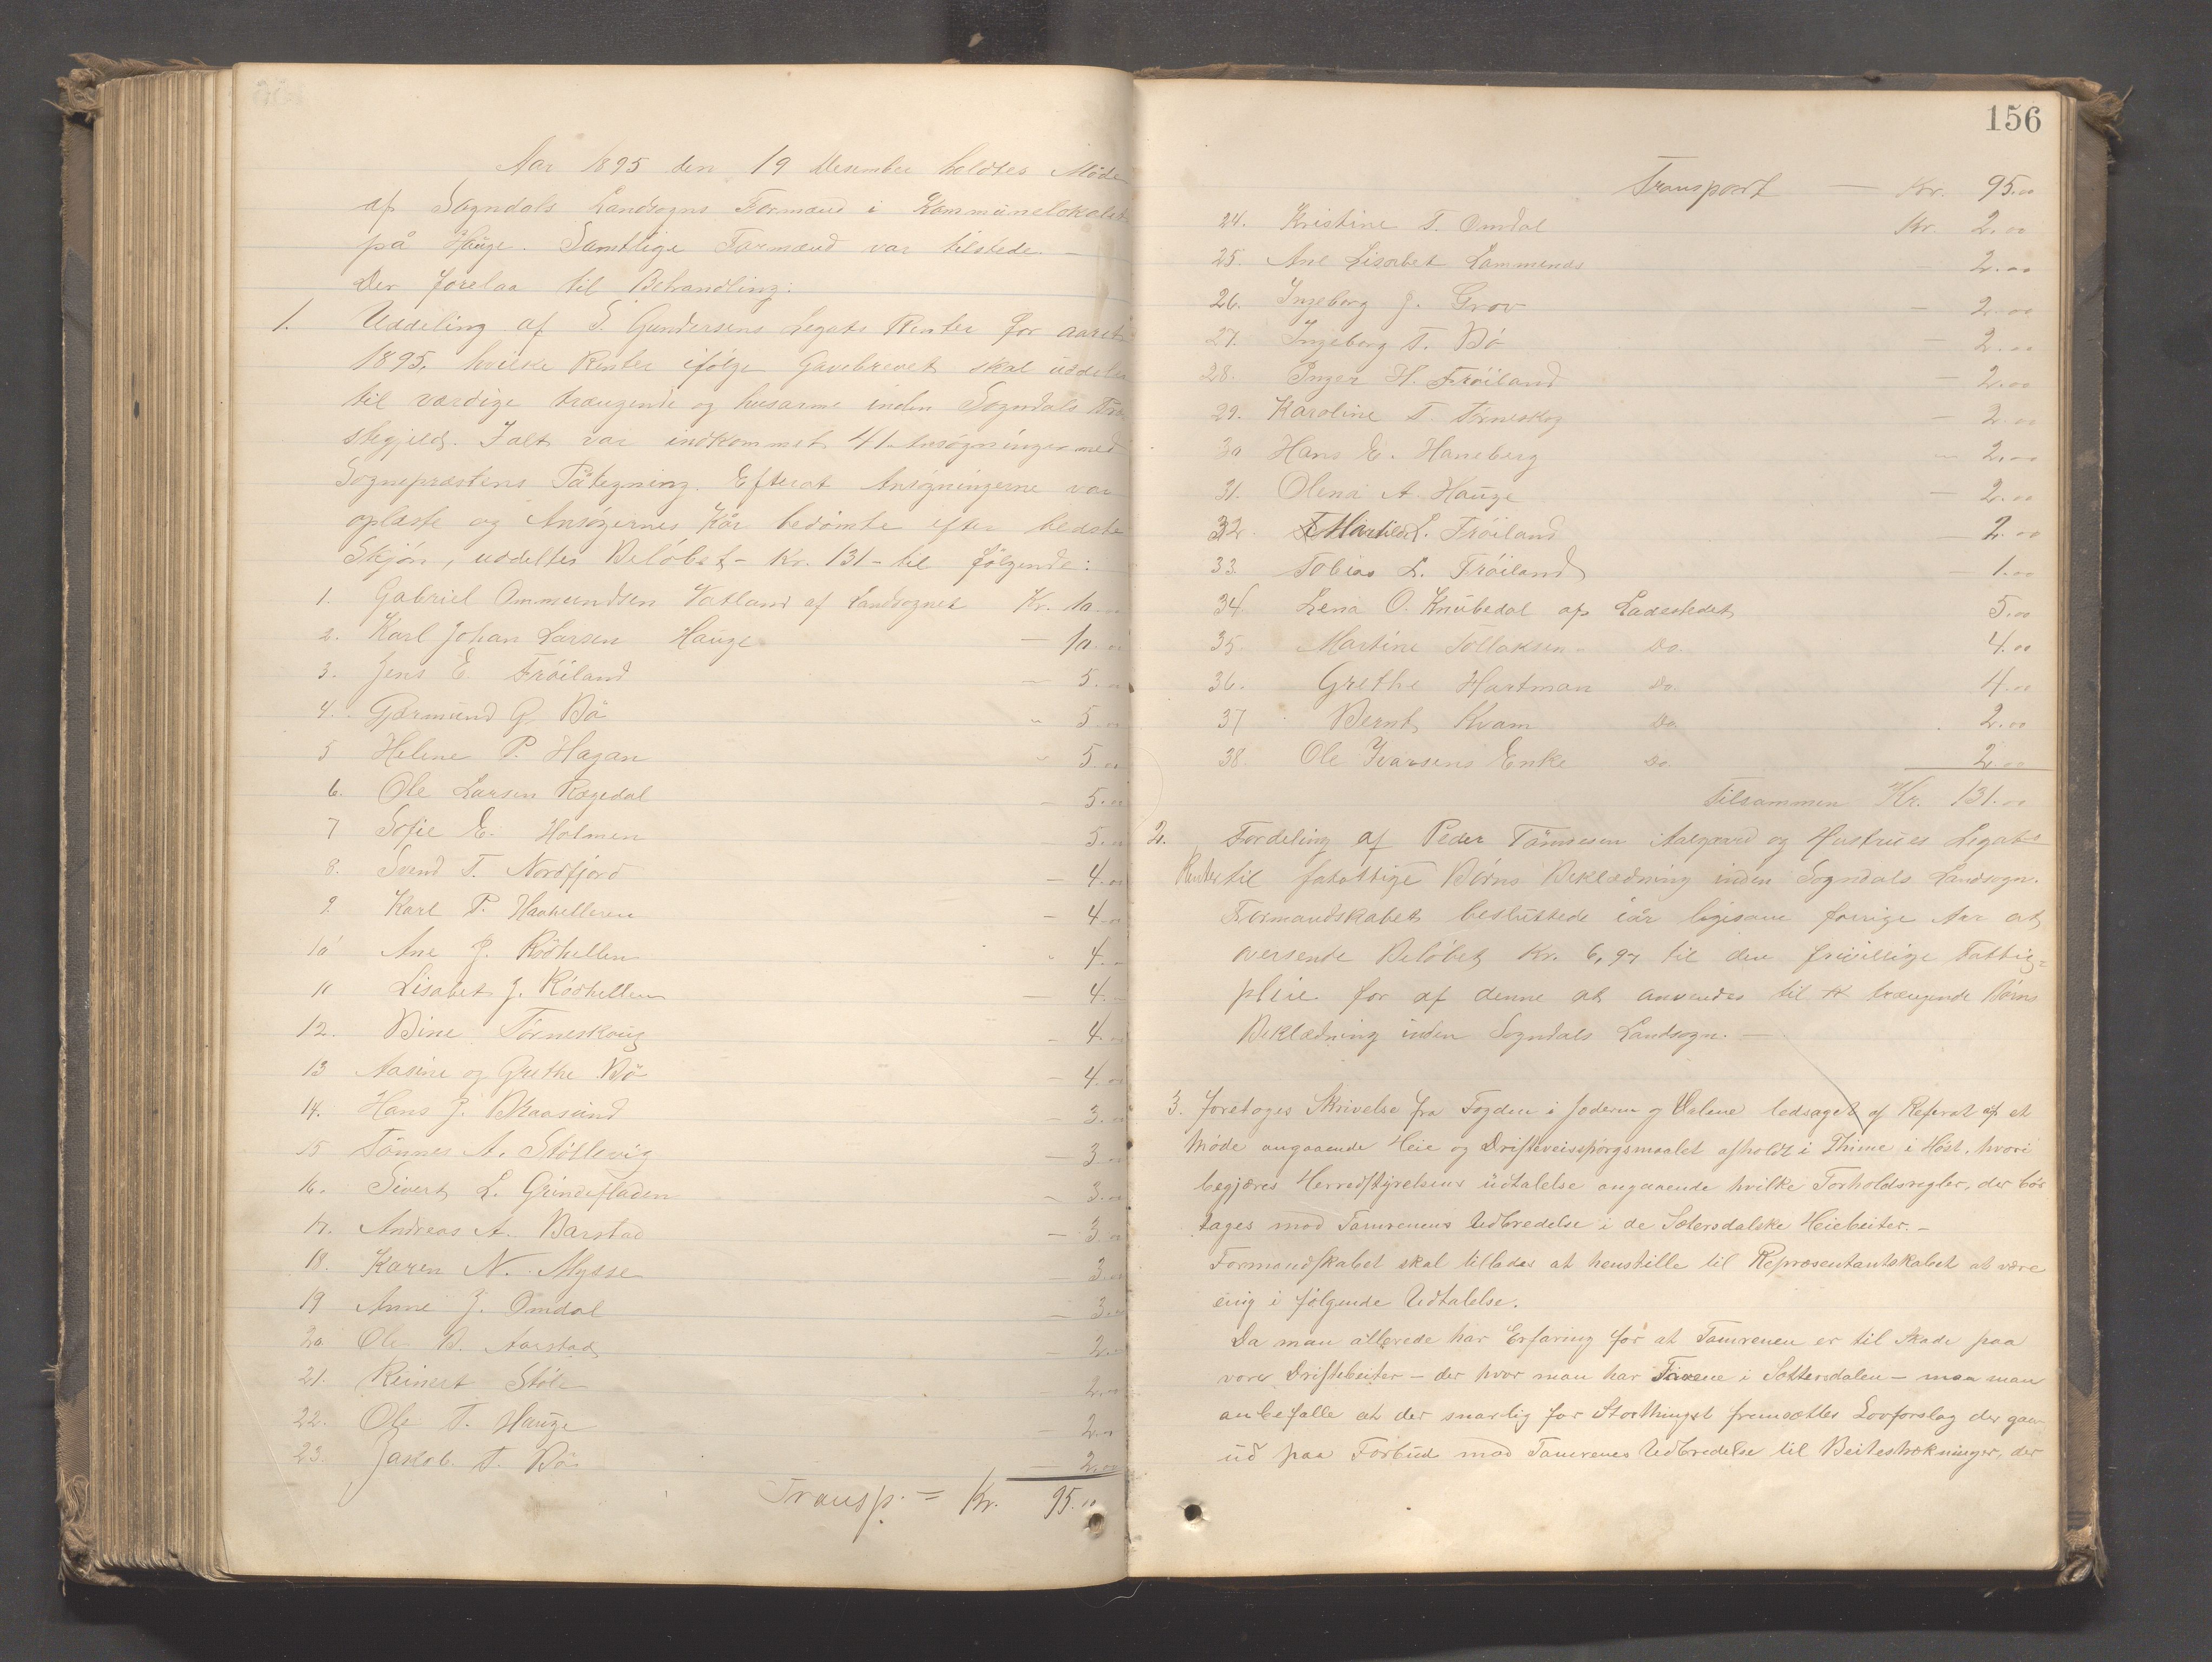 Aar 1895 den 19 Desember holdtes Møde
af Sogndals Landsogns Formænd i Kommunelokalet
på Hauge. Samtlige Formænd var tilstede. –
Der forelaa til Behandling:
1. Uddeling af S. Gundersens Legats Renter for aaret
1895, hvilke Renter ifølge Gavebrevet skal uddeles
til værdige trængende og husarme inden Sogndals Præ
stegjeld. Ialt var indkommet 41 Ansøgninger med
Sognepræstens Påtegning. Efterat Ansøgningerne var
oplæste og Ansøgernes Kår bedømte efter bedste
Skjøn, uddeltes Beløbet – Kr. 131 – til følgende:
1. Gabriel Ommundsen Vatland af Landsognet Kr. 10.00
2. Karl Johan Larsen Hauge – 10.00
3. Jens E. Frøiland – 5.00
4. Gjermund G. Bø " 5.00
5 Helene P. Hagan " 5.00
6. Ole Larsen Rægedal – 5.00
7 Sofie E. Holmen 5.00
8. Svend T. Nordfjord – 4.00
9. Karl P. Haahelleren – 4.00
10 Ane J. Rødhellen " 4.–
11 Lisabet J. Rødhellen – 4.–
12. Bine Tørneskoug – 4.00
13 Aasine og Grethe Bø – 4.00
14. Hans J. Braasund – 3.00
15 Tønnes A. Støtlevig – 3.00
16. Sivert L. Grindefladen – 3.00
17. Andreas A. Barstad – 3.00
18. Karen N. Mysse 3.00
19 Anne J. Omdal – 3.00
20 Ole B. Aarstad – 2.00
21. Reinert Støle – 2.00
22. Ole T. Hauge – 2.00
23. Jakob T. Bø – 2.00
Transp. = Kr. 95.00
156
Transport – Kr. 95.00
24. Kristine T. Omdal Kr. 2.00
25. Ane Lisabet Lammends 2.00
26. Ingeborg J. Grov – 2.00
27. Ingeborg T. Bø – 2.00
28. Inger H. Frøiland – 2.00
29. Karoline T. Tørneskog – 2.00
30 Hans E. Haneberg – 2.00
31. Olena A. Hauge – 2.00
32. Martilde L. Frøiland – 2.00
33. Tobias L. Frøiland – 1.00
34. Lena O. Knubedal af Ladestedet 5.00
35. Martine Tollaksen Do. 4.00
36. Grethe Hartman Do. 4.00
37 Bernt Kvam Do. 2.00
38. Ole Ivarsens Enke Do 2.00
Tilsammen Kr. 131.00
2. Fordeling af Peder Tønnesen Aalgaard og Hustrues Legats
Renter til fatattige Børns Beklædning inden Sogndals Landsogn.
Formandskabet besluttede iår ligesom forrige Aar at
oversende Beløbet Kr. 6,97 til den frivillige Fattig=
pleie for af denne at anvendes til trængende Børns
Beklædning inden Sogndals Landsogn. –
3. Foretoges Skrivelse fra Fogden i Jæderen og Dalene ledsaget af Referat af et
Møde angaaende Heie og Drifteveisspørgsmaalet afholdt i Thime i Høst, hvori
begjæres Herredstyrelsens Udtalelse angaaende hvilke Forholdsregler, der bør
tages mod Tamrenens Udbredelse i de Sætersdalske Heiebeiter. –
Formandskabet skal tillades at henstille til Repræsentantskabet at være
enig i følgende Udtalelse.
Da man allerede har Erfaring for at Tamrenen er til Skade paa
vore Driftebeiter – der hvor man har Favene i Sættersdalen – maa man
anbefalle at der snarlig for Storthinget fremsættes Lovforslag der gaar
ud paa Forbud mod Tamrenes Udbredelse til Beitestrækninger, der